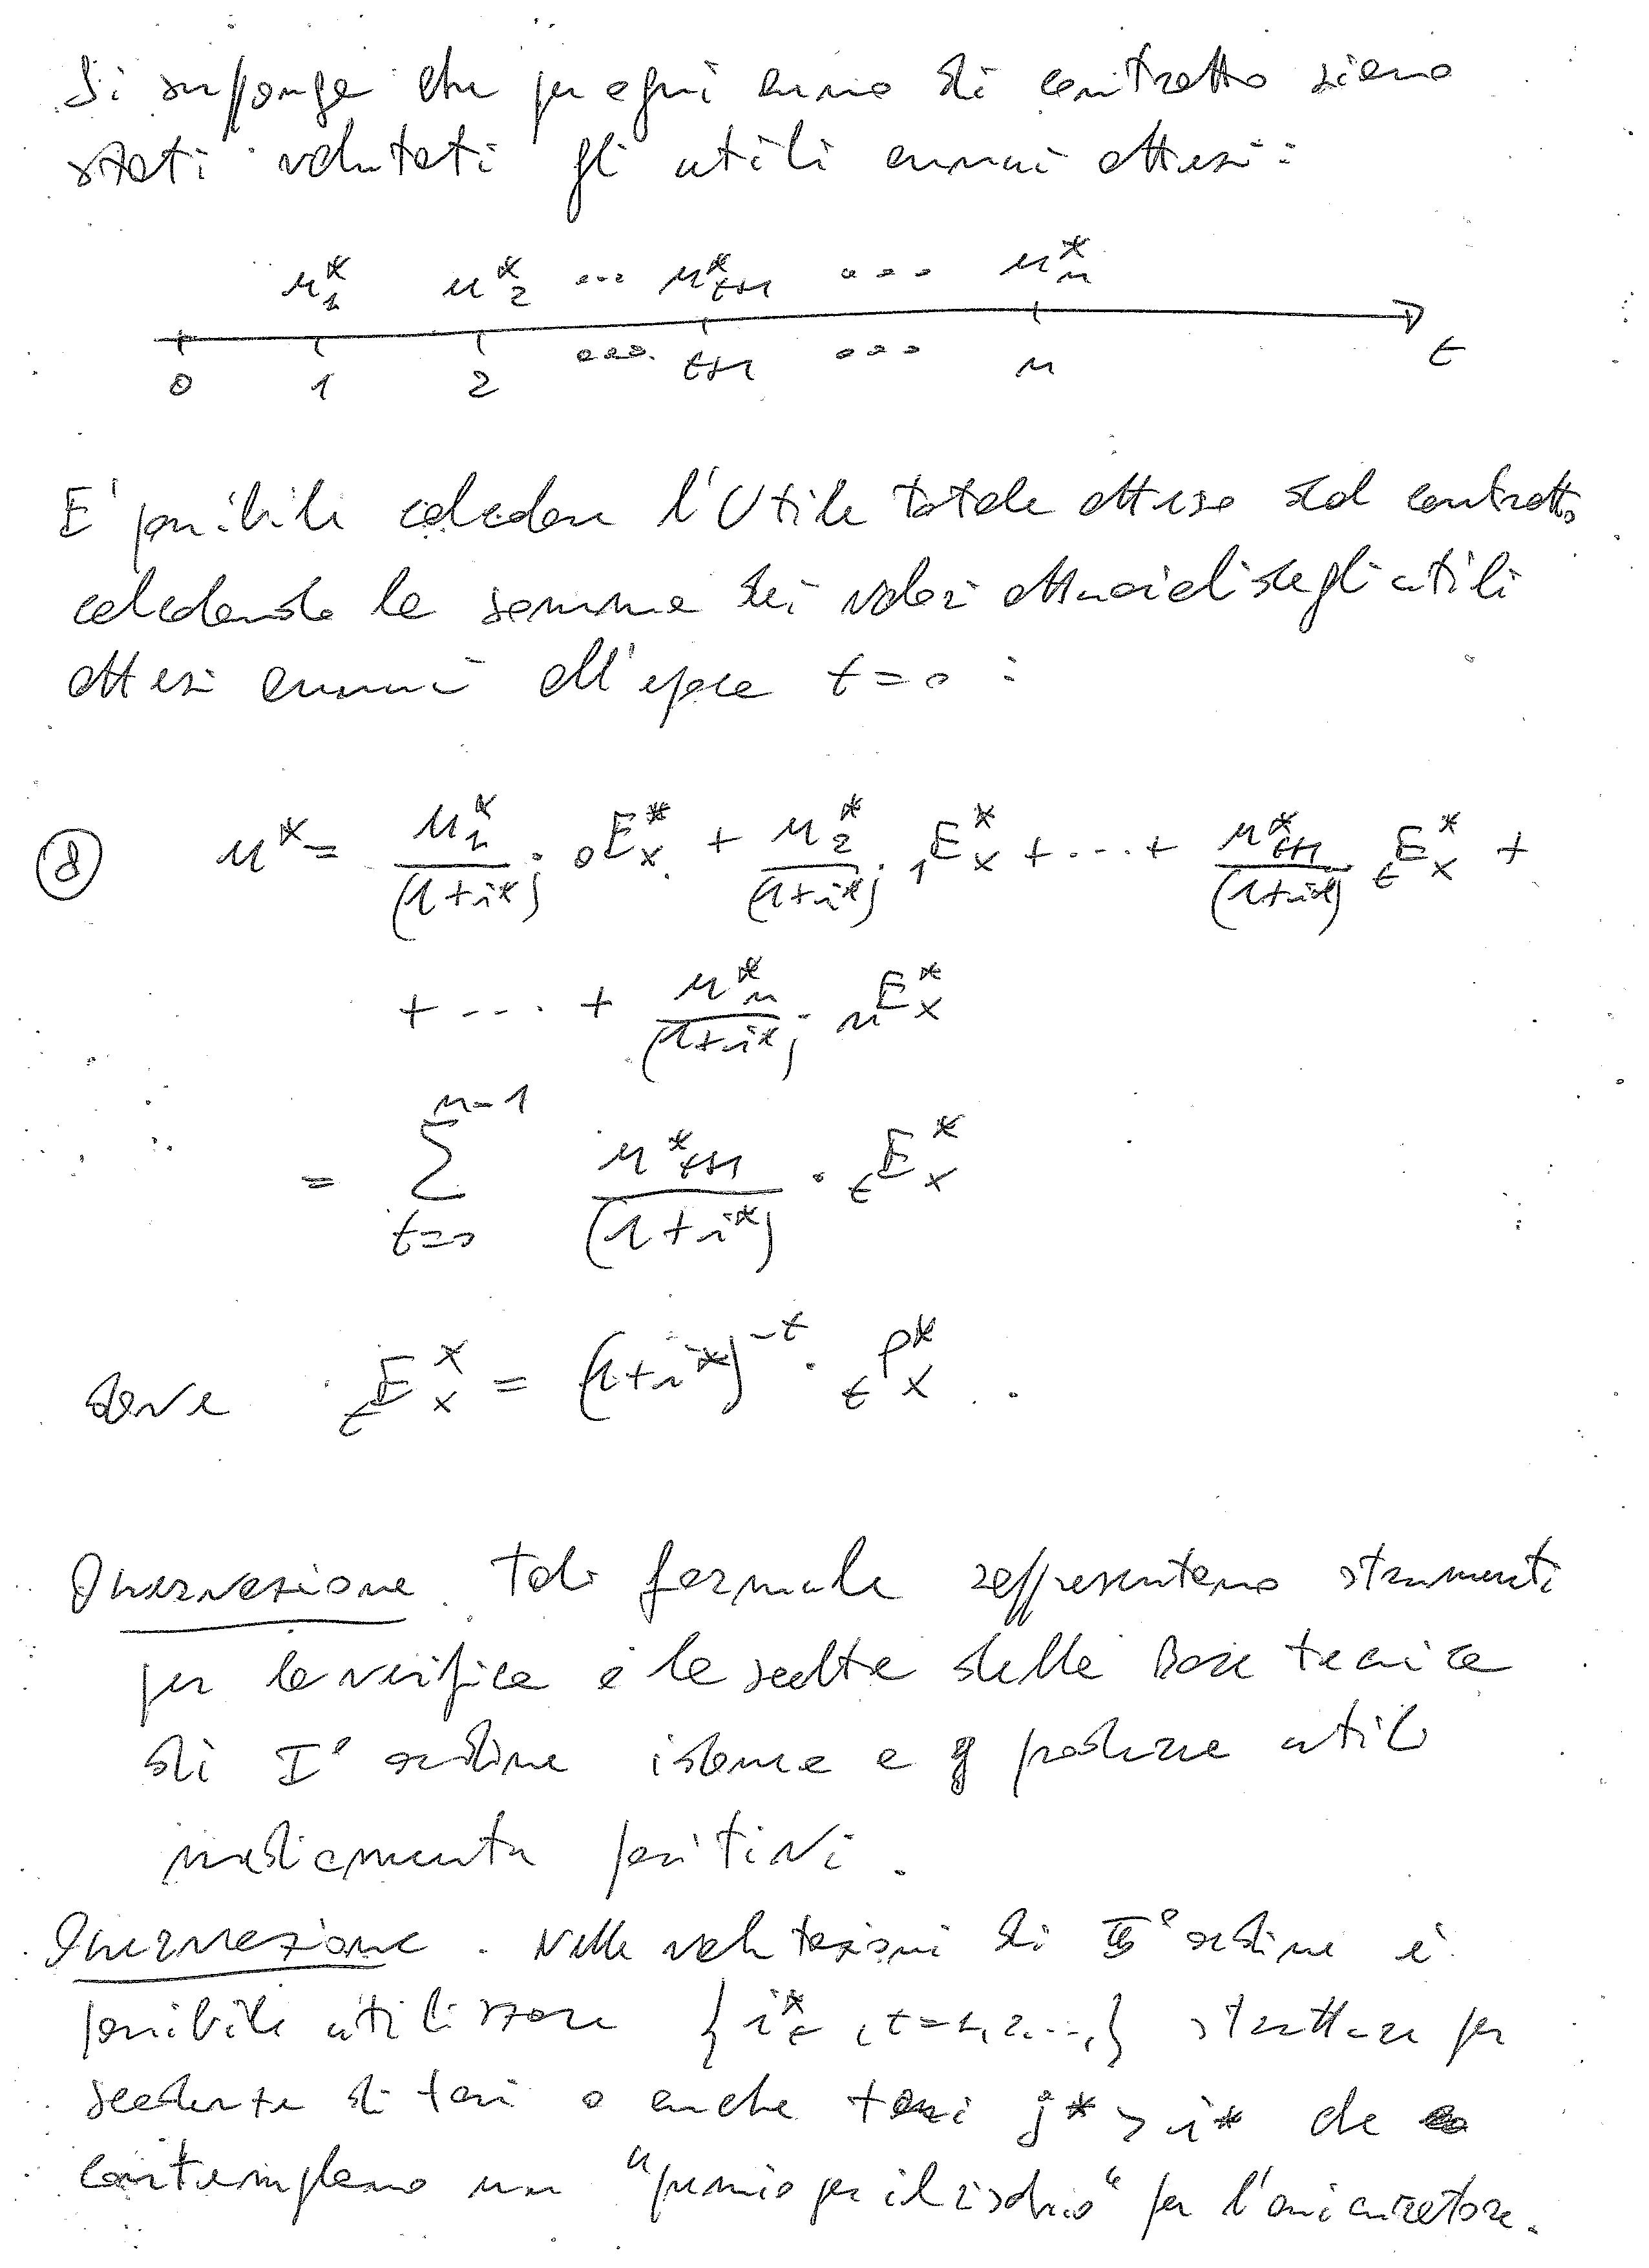 Si suppone che per ogni anno di contratto siano
stati valutati gli utili annui attesi:
u*_1 u*_2 ... u*_{t+1} ... u*_n
0 1 2 .... t+1 ... n t
E' possibile calcolare l'Utile totale atteso dal contratto
calcolando la somma dei valori attuariali degli utili
attesi annui all'epoca t=0 :
⑧ u* = u*_1/(1+i*) · ₀E*_x + u*_2/(1+i*) · ₁E*_x + ... + u*_{t+1}/(1+i*) · ₜE*_x +
+ .... + u*_n/(1+i*) · ₙE*_x
= Σ_{t=0}^{n-1} u*_{t+1}/(1+i*) · ₜE*_x
dove ₜE*_x = (1+i*)^{-t} · ₜp*_x .
Osservazione. Tali formule rappresentano strumenti
per la verifica e la scelta della Base tecnica
di I° ordine idonea a produrre utili
mediamente positivi.
Osservazione. Nelle valutazioni di II° ordine è
possibile utilizzare {i*_t , t=1,2,...,} strutture per
scadenza di tassi o anche tassi j* > i* che
contemplano un "premio per il rischio" per l'assicuratore.